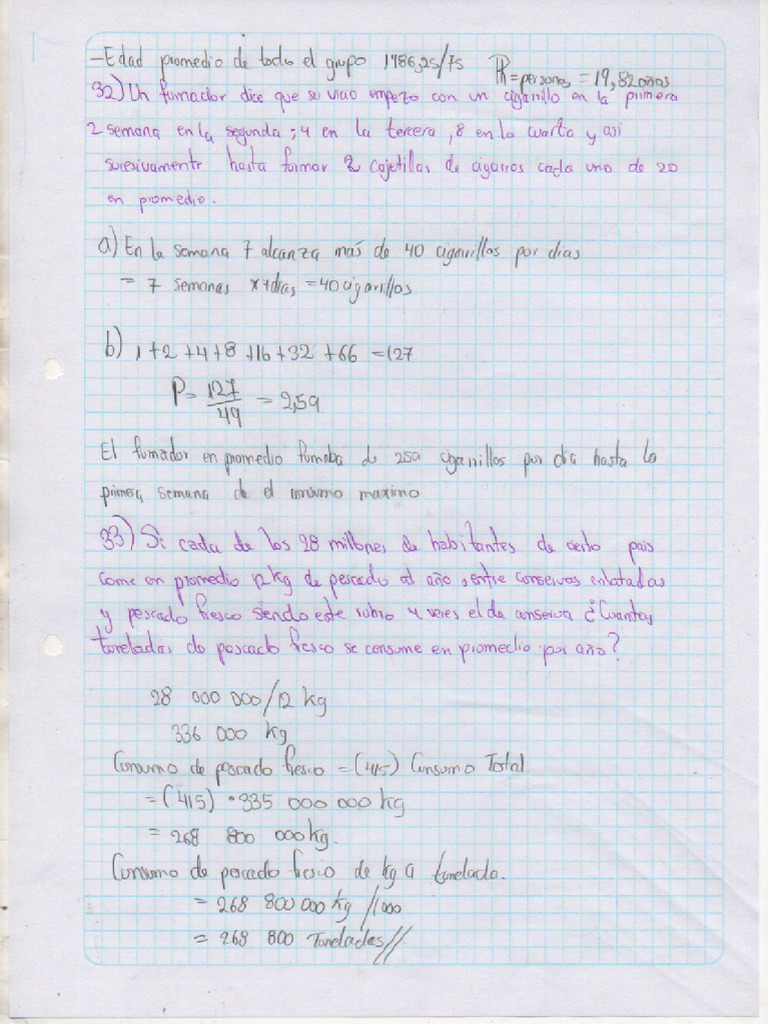 -Edad promedio de todo el grupo 1486,25/75 R=personas =19,82años
32) Un fumador dice que su vicio empezo con un cigarrillo en la primera
2 semana en la segunda ; 4 en la tercera , 8 en la cuarta y asi
sucesivamente hasta fumar 2 cajetillas de cigarros cada uno de 20
en promedio.
a) En la semana 7 alcanza más de 40 cigarrillos por dias
= 7 semanas x7dias =40cigarrillos
b) 1+2+4+8+16+32+66 =127
P= 127/49 = 2,59
El fumador en promedio fumaba 259 cigarrillos por dia hasta la
primera semana de el consumo maximo
33) Si cada de los 28 millones de habitantes de cierto pais
come en promedio 12kg de pescado al año , entre conservas enlatadas
y pescado fresco siendo este rubro 4 veces el de conserva ¿Cuantas
toneladas de pescado fresco se consume en promedio por año?
28 000 000/12 kg
336 000 kg
Consumo de pescado fresco = (4/5) Consumo Total
= (4/5) · 335 000 000 kg
= 268 800 000kg.
Consumo de pescado fresco de kg a tonelada.
= 268 800 000 kg //1000
= 268 800 Toneladas//